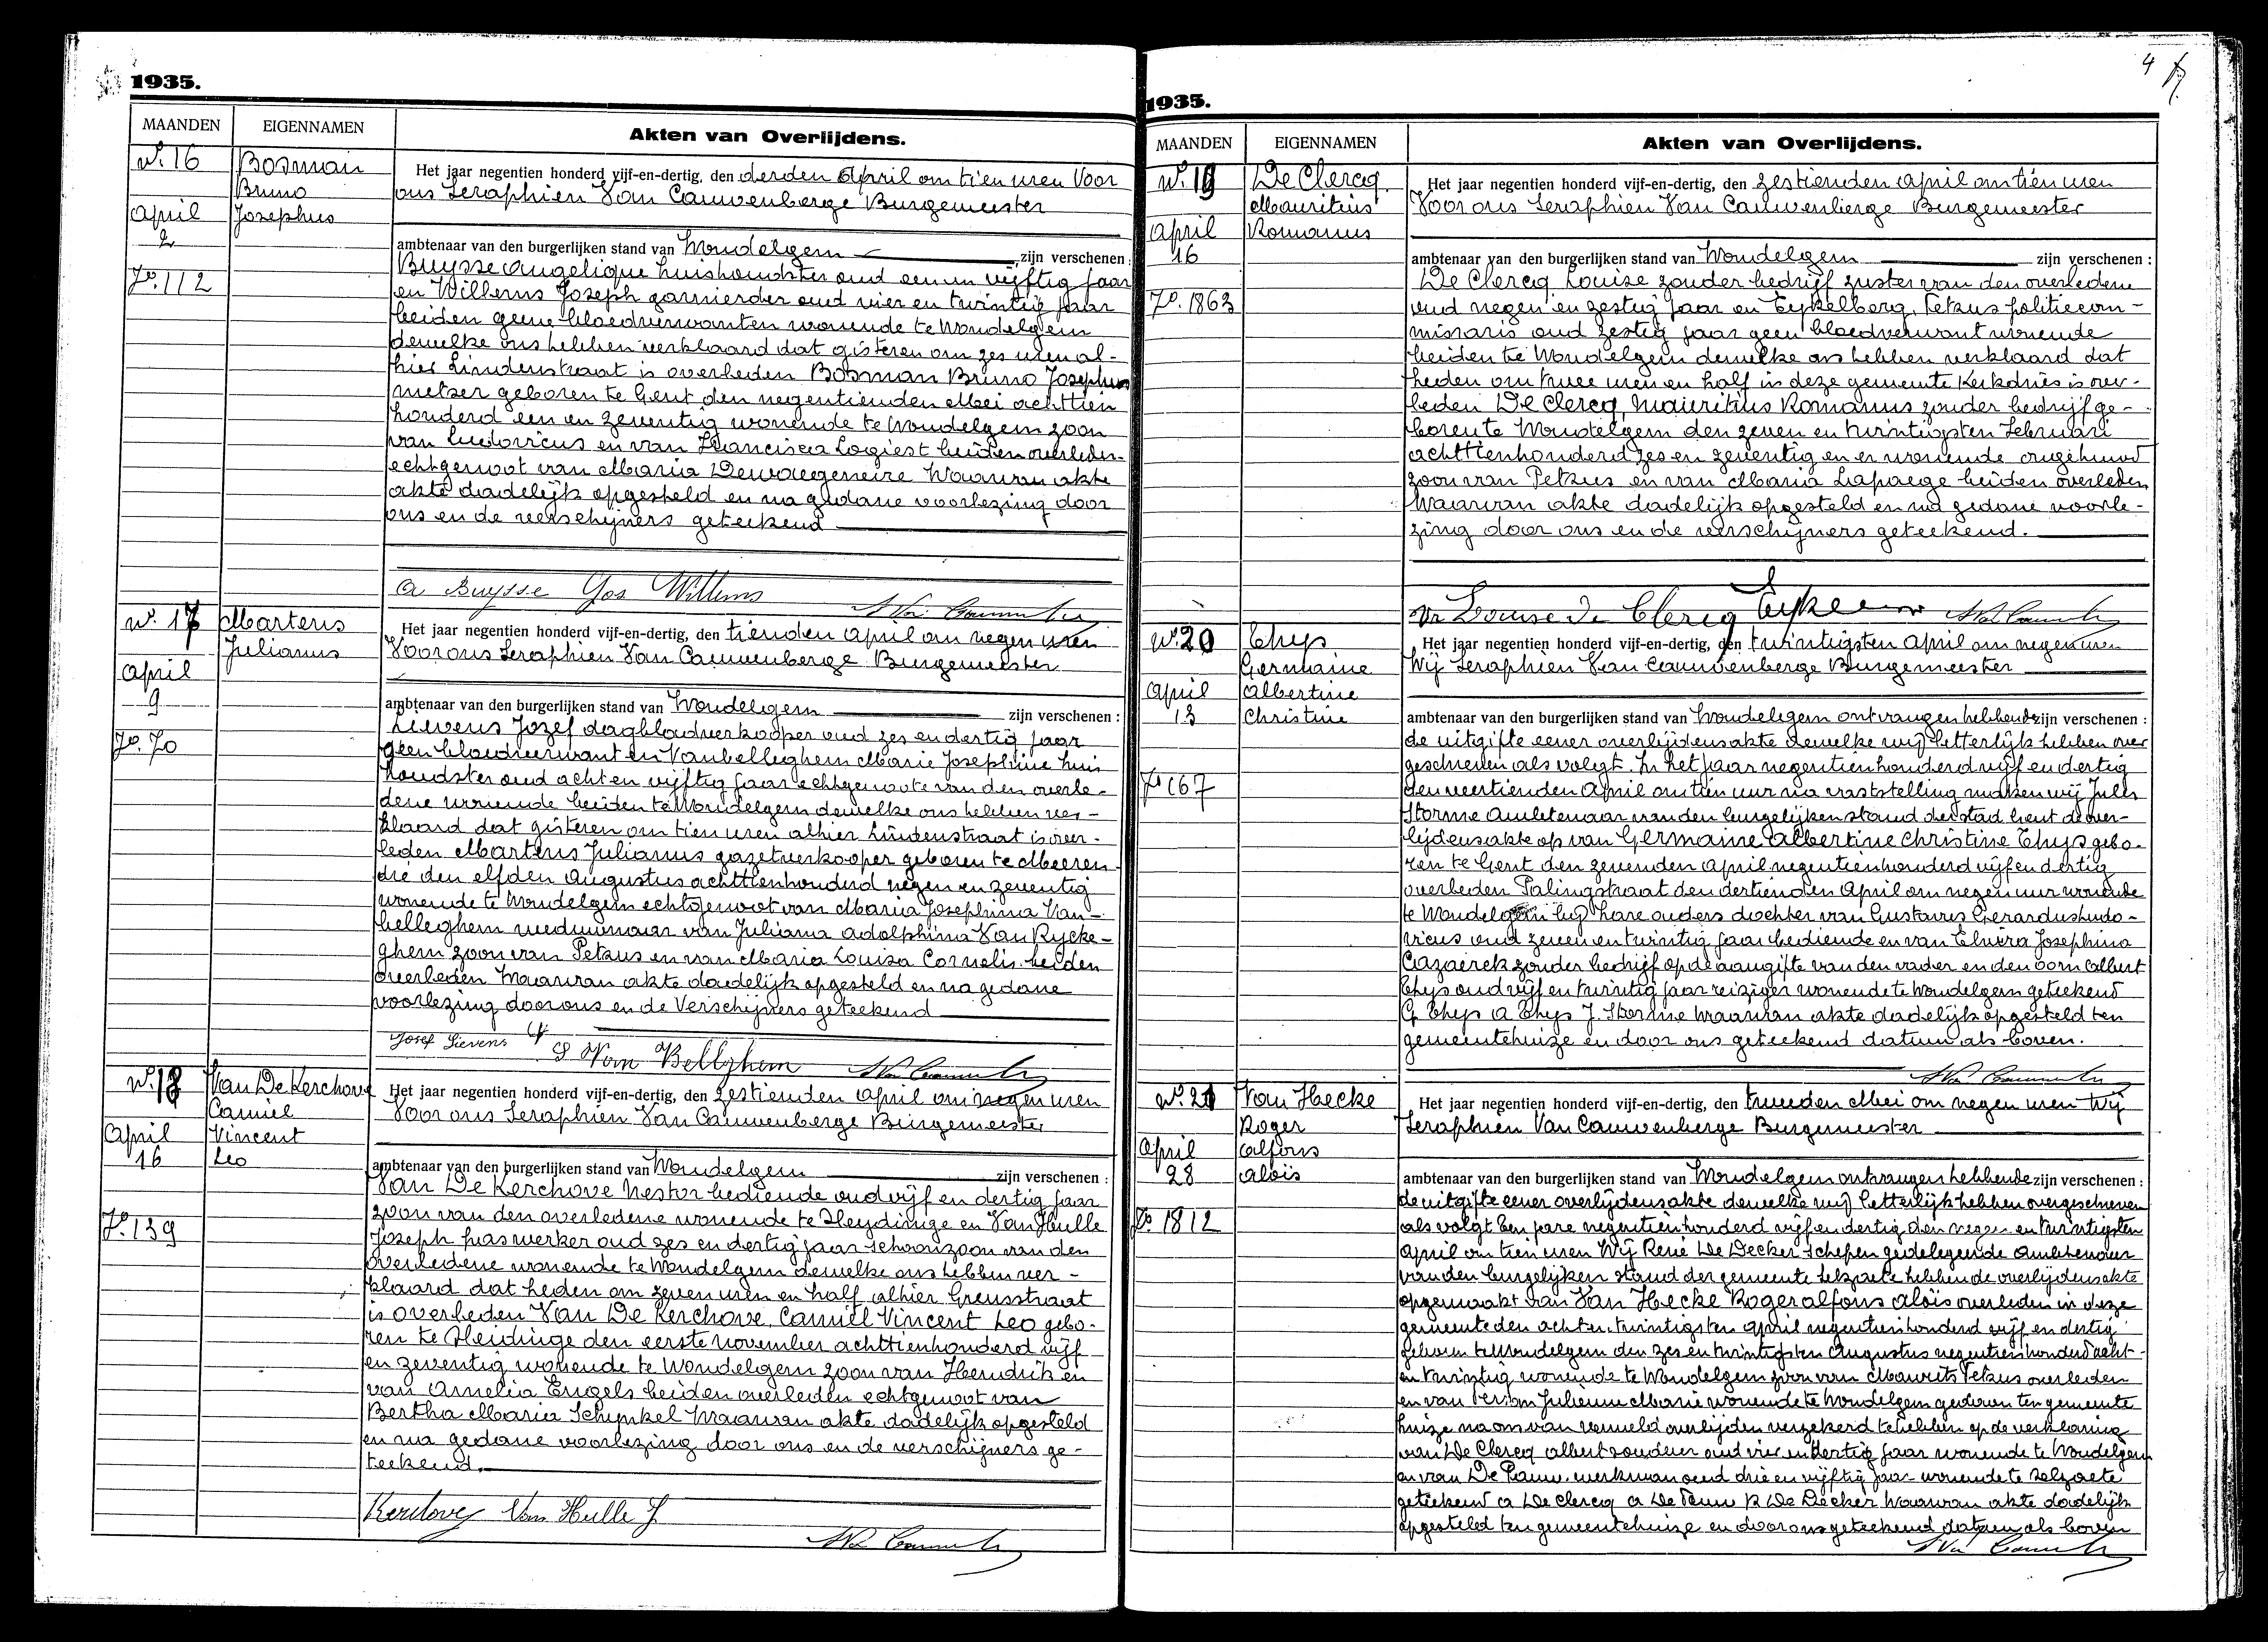 1935.
MAANDEN
EIGENNAMEN
Akten van Overlijdens.
No. 16
Bosman
Bruno
Josephus
April
2
Fo. 112
Het jaar negentien honderd vijf-en-dertig, den derden April om tien uren Voor
ons Seraphien Van Cauwenberge Burgemeester
ambtenaar van den burgerlijken stand van Wondelgem zijn verschenen :
Buysse Angelique huishoudster oud een en vijftig jaar
en Willems Joseph garnierder oud vier en twintig jaar
beiden geene bloedverwanten wonende te Wondelgem
dewelke ons hebben verklaard dat gisteren om zes uren al-
hier Lindenstraat is overleden Bosman Bruno Josephus
metser geboren te Gent den negentienden Mei achttien
honderd een en zeventig wonende te Wondelgem zoon
van Ludovicus en van Francisca Logiest beiden overleden
echtgenoot van Maria Dewaegeneire Waarvan akte
akte dadelijk opgesteld en na gedane voorlezing door
ons en de verschijners geteekend
A Buysse Jos Willems
No. 17
Martens
Julianus
April
9
Fo. 70
Het jaar negentien honderd vijf-en-dertig, den tienden April om negen uren
Voor ons Seraphien Van Cauwenberge Burgemeester
ambtenaar van den burgerlijken stand van Wondelgem zijn verschenen :
Lievens Jozef dagbladverkooper oud zes en dertig jaar
geen bloedverwant en Vanbelleghem Marie Josephine huis
houdster oud acht en vijftig jaar echtgenoote van den overle-
dene wonende beiden te Wondelgem dewelke ons hebben ver-
klaard dat gisteren om tien uren alhier Lindenstraat is over-
leden Martens Julianus gazetverkooper geboren te Meeren
dré den elfden Augustus achttienhonderd negen en zeventig
wonende te Wondelgem echtgenoot van Maria Josephina Van-
belleghem weduwnaar van Juliana Adolphina Van Rycke-
ghem zoon van Petrus en van Maria Louisa Cornelis beiden
overleden Waarvan akte dadelijk opgesteld en na gedane
voorlezing door ons en de Verschijners geteekend
Josef Lievens
S Van Bellghem
No. 18
Van De Kerchove
Camiel
Vincent
Leo
April
16
Fo. 139
Het jaar negentien honderd vijf-en-dertig, den zestienden April om negen uren
Voor ons Seraphien Van Cauwenberge Burgemeester
ambtenaar van den burgerlijken stand van Wondelgem zijn verschenen :
Van De Kerchove Nestor bediende oud vijf en dertig jaar
zoon van den overledene wonende te Heydinge en Van Hulle
Joseph jraswerker oud zes en dertig jaar schoonzoon van den
overledene wonende te Wondelgem dewelke ons hebben ver-
klaard dat heden om zeven uren en half alhier Grensstraat
is overleden Van De Kerchove Camiël Vincent Leo gebo-
ren te Sleidinge den eerste november achttienhonderd vijf
en zeventig wonende te Wondelgem zoon van Hendrik en
van Amelia Engels beiden overleden echtgenoot van
Bertha Maria Schynkel Waarvan akte dadelijk opgesteld
en na gedane voorlezing door ons en de verschijners ge-
teekend.
Van Hulle J
4
1935.
MAANDEN
EIGENNAMEN
Akten van Overlijdens.
No. 19
De Clercq
Mauritius
Romanus
April
16
Fo. 1863
Het jaar negentien honderd vijf-en-dertig, den zestienden April om tien uren
Voor ons Seraphien Van Cauwenberge Burgemeester
ambtenaar van den burgerlijken stand van Wondelgem zijn verschenen :
De Clercq Louise zonder bedrijf zuster van den overledene
oud negen en zestig jaar en Eykelberg, Petrus politiecom-
missaris oud zestig jaar geen bloedverwant wonende
beiden te Wondelgem dewelke ons hebben verklaard dat
heden om twee uren en half in deze gemeente Kerkdries is over-
leden De Clercq, Mauritius Romanus zonder bedrijf ge-
boren te Wondelgem den zeven en twintigsten Februari
achttienhonderd zes en zeventig en er wonende ongehuwd
zoon van Petrus en van Maria Lapaege beiden overleden
Waarvan akte dadelijk opgesteld en na gedane voorle-
zing door ons en de verschijners geteekend.
Louise De Clercq
No. 20
Thys
Germaine
Albertine
Christine
April
13
Fo 167
Het jaar negentien honderd vijf-en-dertig, den twintigsten April om negen uren
Wij Seraphien Van Cauwenberge Burgemeester
ambtenaar van den burgerlijken stand van Wondelgem ontvangen hebbende zijn verschenen :
de uitgifte eener overlijdensakte dewelke wij letterlijk hebben over
geschreven als volgt. In het jaar negentienhonderd vijf en dertig
den veertienden April om tien uur na vaststelling maken wij Jules
Storme Ambtenaar van den burgelijken stand der stad Gent de over-
lijdensakte op van Germaine Albertine Christine Thys gebo-
ren te Gent den zevenden April negentienhonderd vijf en dertig
overleden Palingstraat den dertienden April om negen uur wonende
te Wondelgem bij hare ouders dochter van Gustaves Gerardus Ludo-
vicus oud zeven en twintig jaar bediende en van Elvira Josephina
Cazaerck zonder bedrijf op de aangifte van den vader en den oom Albert
Thys oud vijf en twintig jaar reiziger wonende te Wondelgem geteekend
G Thys A Thys J. Storme Waarvan akte dadelijk opgesteld ten
gemeentehuize en door ons geteekend datum als boven.
No. 21
Van Hecke
Roger
Alfons
Aloïs
April
28
Fo 1812
Het jaar negentien honderd vijf-en-dertig, den tweeden Mei om negen uren Wij
Seraphien Van Cauwenberge Burgemeester
ambtenaar van den burgerlijken stand van Wondelgem ontvangen hebbende zijn verschenen :
de uitgifte eener overlijdensakte dewelke wij letterlijk hebben overgeschreven
als volgt Een jare negentienhonderd vijf en dertig den negen en twintigsten
April om tien uren Wij René De Decker Schepen gedelegeerde Ambtenaar
van den burgelijken stand der gemeente Selzaete hebben de overlijdensakte
opgemaakt van Van Hecke Roger Alfons Aloïs overleden in deze
gemeente den acht en twintigsten April negentienhonderd vijf en dertig
geboren te Wondelgem den zes en twintigsten Augustus negentienhonderd acht-
en twintig wonende te Wondelgem zoon van Maurits Petrus overleden
en van Julienne Marie wonende te Wondelgem gedaan ten gemeente
huize na ons van vermeld overlijden verzekerd te hebben op de verklaring
van De Clercq Albert soudeur oud vier en dertig jaar wonende te Wondelgem
en van De Pauw werkman oud drie en vijftig jaar wonende te Selzaete
geteekend A De Clercq A De Pauw R De Decker Waarvan akte dadelijk
opgesteld ten gemeentehuize en door ons geteekend datum als boven